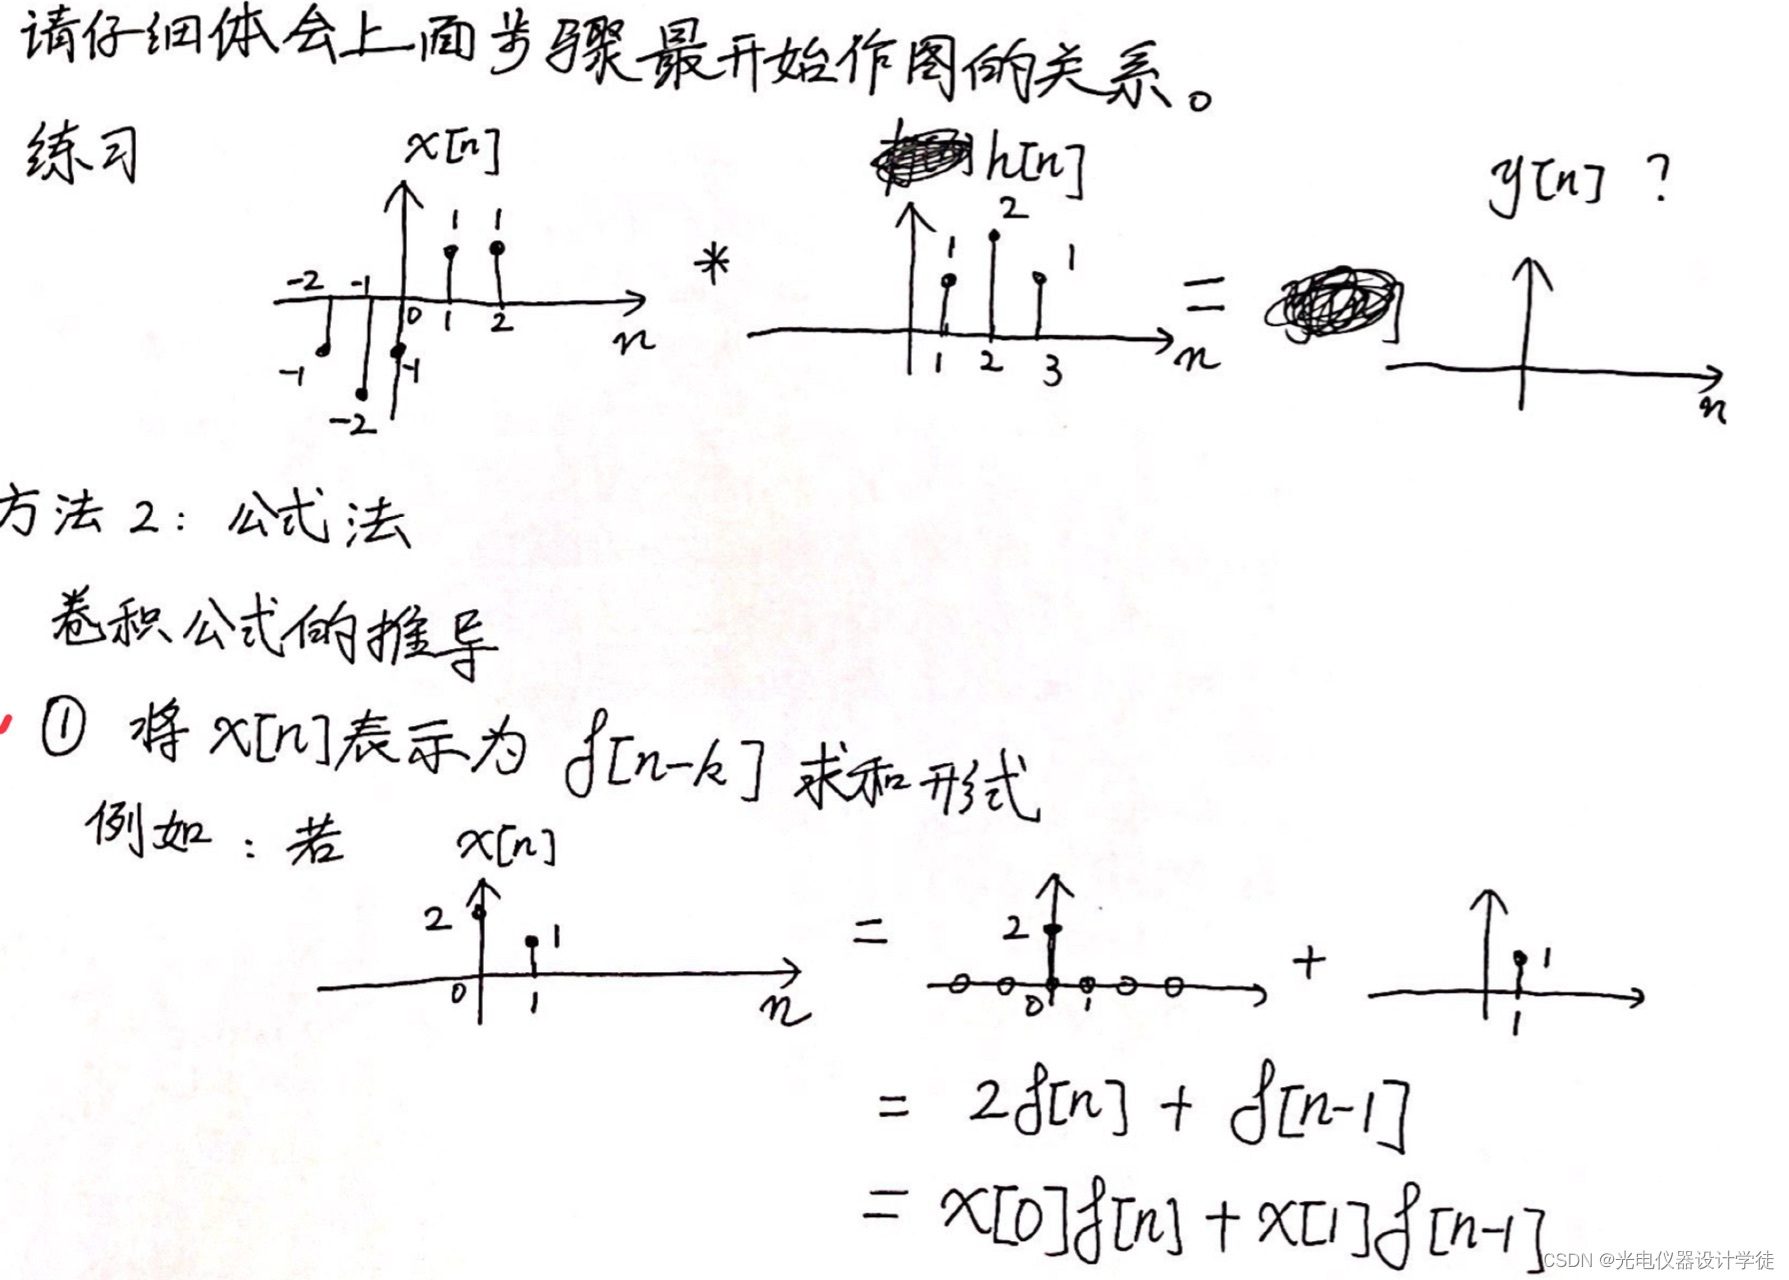 请仔细体会上面步骤最开始作图的关系。
练习
x[n] h[n] y[n] ?
1 1 1 2 1
-2 -1 0 1 2 n * 1 2 3 n = n
-1 -2 -1
方法2: 公式法
卷积公式的推导
① 将 x[n]表示为 δ[n-k] 求和形式
例如: 若 x[n]
2 1 = 2 + 1
0 1 n 0 1 1
= 2δ[n] + δ[n-1]
= x[0]δ[n] + x[1]δ[n-1]
CSDN @光电仪器设计学徒